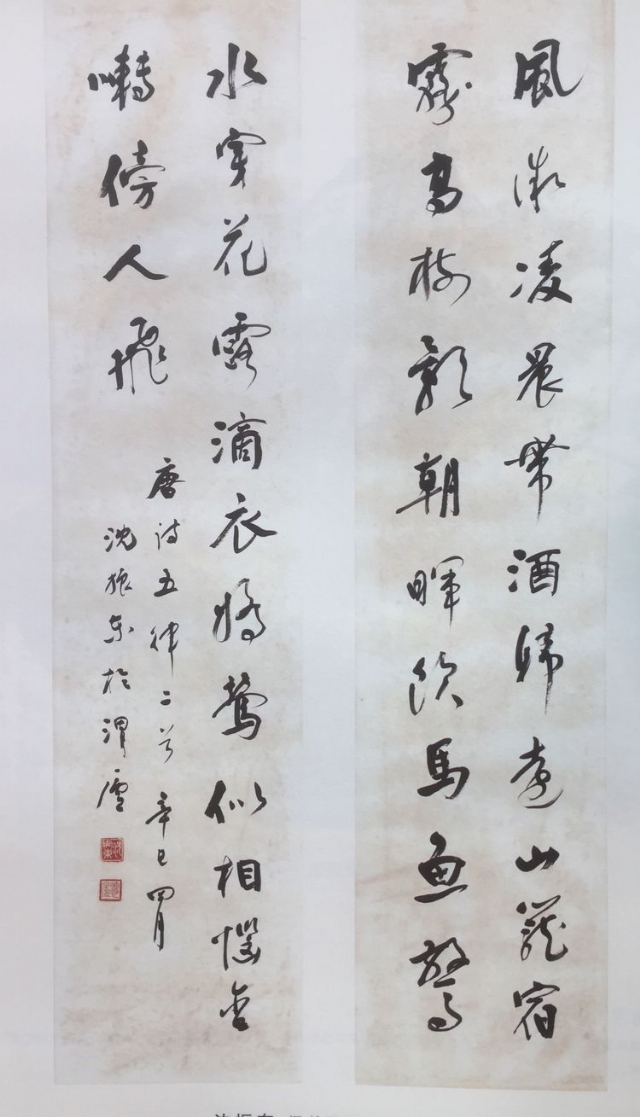 風微凌晨帶酒歸遠山籠宿
霧高樹影朝暉飲馬魚驚
水穿花露滴衣嬌鶯似相惱含
囀傍人飛
唐詩五律二首 辛巳四月
沈振東於渭廬